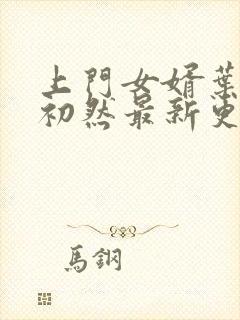 上門女婿葉
初然最新更
馬鋼